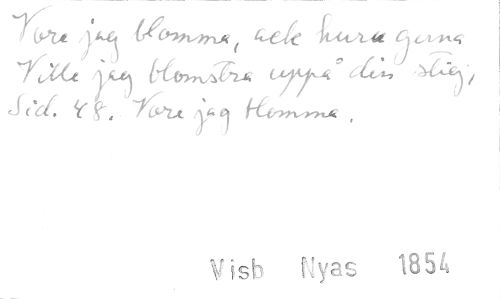 Vore jag blomma, ack huru gerna
Ville jag blomstra uppå din stig,
Sid. 48. Vore jag blomma.
Visb Nyas 1854